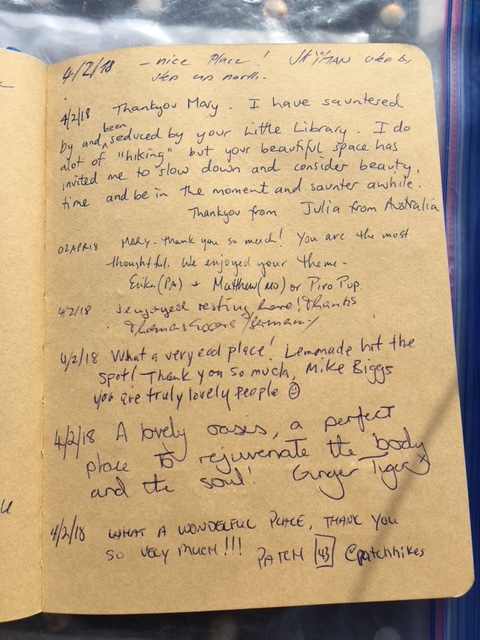 4/2/18 - nice Place!
up north.
4/2/18 Thankyou Mary. I have sauntered
by and been seduced by your Little Library. I do
alot of "hiking" but your beautiful space has
invited me to slow down and consider beauty,
time and be in the moment and saunter awhile.
Thankyou from Julia from Australia
02APR18 Mary - Thank you so much! You are the most
thoughtful. We enjoyed your theme -
Erika (PA) + Matthew (MO) or Piro Pup.
4/2/18 enjoyed resting here! Thanks
Thomas /Germany/
4/2/18 What a very cool place! Lemonade hit the
spot! Thank you so much, Mike Biggs
you are truly lovely people ☺
4/2/18 A lovely oases, a perfect
place to rejuvenate the body
and the soul! Ginger Tiger x
4/2/18 WHAT A WONDELFUL PLACE, THANK YOU
SO VERY MUCH!!! PATCH 43 @patchhikes